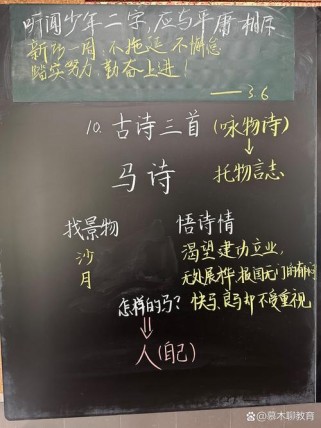 听闻少年二字,应与平庸相斥
新的一周 不拖延 不懈怠
踏实努力 勤奋上进!
——3.6
10. 古诗三首(咏物诗)
↓
马诗 托物言志
找景物 悟诗情
沙 渴望建功立业,
月 无处展才,报国无门的
怎样的马? 快马、良马却不受重视
⇓
人(自己)
@慕木聊教育